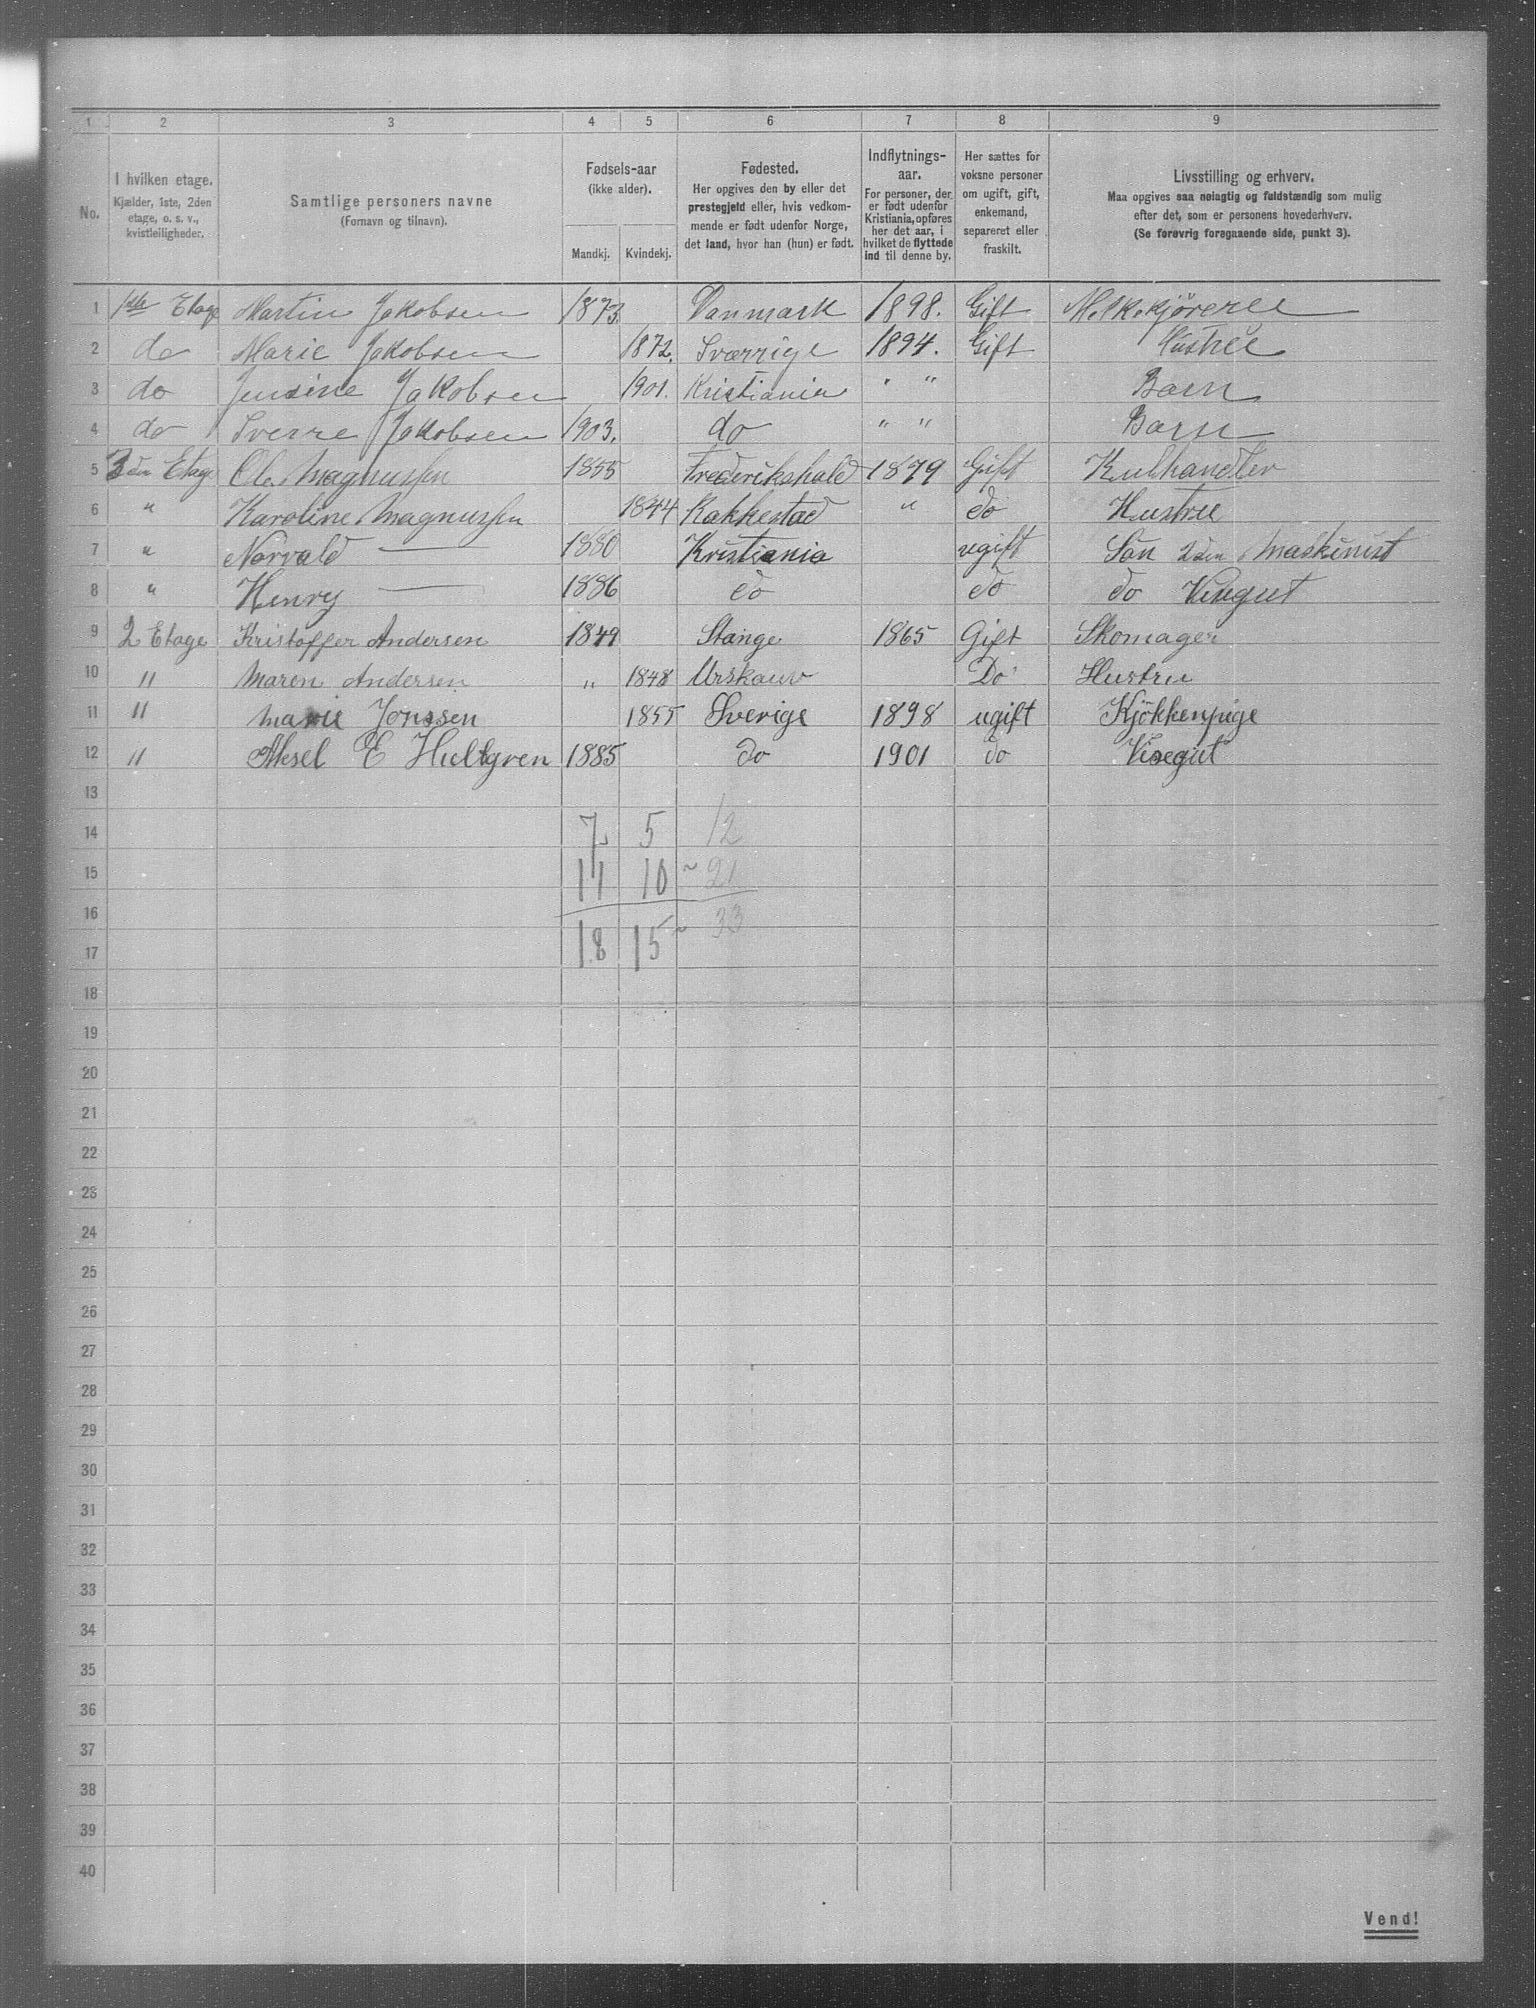 1 2 3 4 5 6 7 8 9
No.
I hvilken etage.
Kjælder, 1ste, 2den
etage, o. s. v.,
kvistleiligheder.
Samtlige personers navne
(Fornavn og tilnavn).
Fødsels-aar
(ikke alder).
Mandkj. Kvindekj.
Fødested.
Her opgives den by eller det
prestegjeld eller, hvis vedkom-
mende er født udenfor Norge,
det land, hvor han (hun) er født.
Indflytnings-
aar.
For personer, der
er født udenfor
Kristiania, opføres
her det aar, i
hvilket de flyttede
ind til denne by.
Her sættes for
voksne personer
om ugift, gift,
enkemand,
separeret eller
fraskilt.
Livsstilling og erhverv.
Maa opgives saa nøiagtig og fuldstændig som mulig
efter det, som er personens hovederhverv.
(Se forøvrig foregaaende side, punkt 3).
1 1ste Etage Martin Jakobsen 1873. Danmark 1898. Gift Melkekjörere
2 do Marie Jakobsen 1872. Sværrige 1894. Gift Hustrü
3 do Jensine Jakobsen 1901. Kristiania " " Barn
4 do Sverre Jakobsen 1903. do " " Barn
5 3den Etag Ole Magnussen 1855 Frederikshald 1879 Gift Kulhandler
6 " Karoline Magnussen 1844 Rakkestad " do Hustru
7 " Norvald — 1880 Kristiania ugift Sön 2den Maskinist
8 " Henry — 1886 do do do Visegut
9 2 Etage Kristoffer Andersen 1849 Stange 1865 Gift Skomager
10 " Maren Andersen " 1848 Urskauv Do Hustru
11 " Marie Jonssen 1855 Sverige 1898 ugift Kjökkenpige
12 " Aksel E Hultgren 1885 do 1901 do Visegut
13
14 7 5 12
15 11 10 ~ 21
16
17 18 15 ~ 33
18
19
20
21
22
23
24
25
26
27
28
29
30
31
32
33
34
35
36
37
38
39
40
Vend!